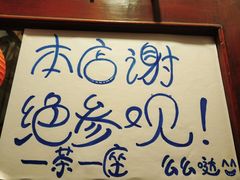 本店谢
绝参观！
一茶一座
么么哒